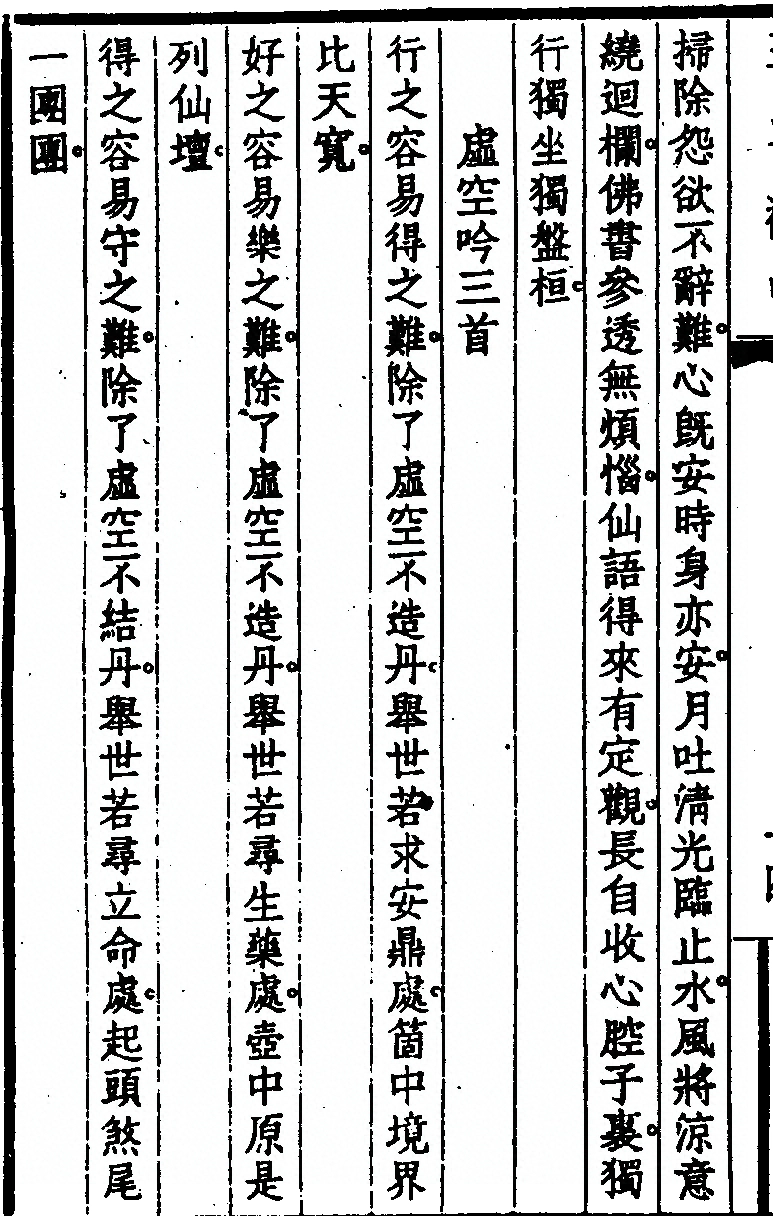 掃除怨欲不辭難。心旣安時身亦安。月吐淸光臨止水。風將涼意
繞迴欄。佛書參透無煩惱。仙語得來有定觀。長自收心腔子裏。獨
行獨坐獨盤桓。
虛空吟三首
行之容易得之難。除了虛空不造丹。舉世若求安鼎處。箇中境界
比天寬。
好之容易樂之難。除了虛空不造丹。舉世若尋生藥處。壺中原是
列仙壇。
得之容易守之難。除了虛空不結丹。舉世若尋立命處。起頭煞尾
一團團。